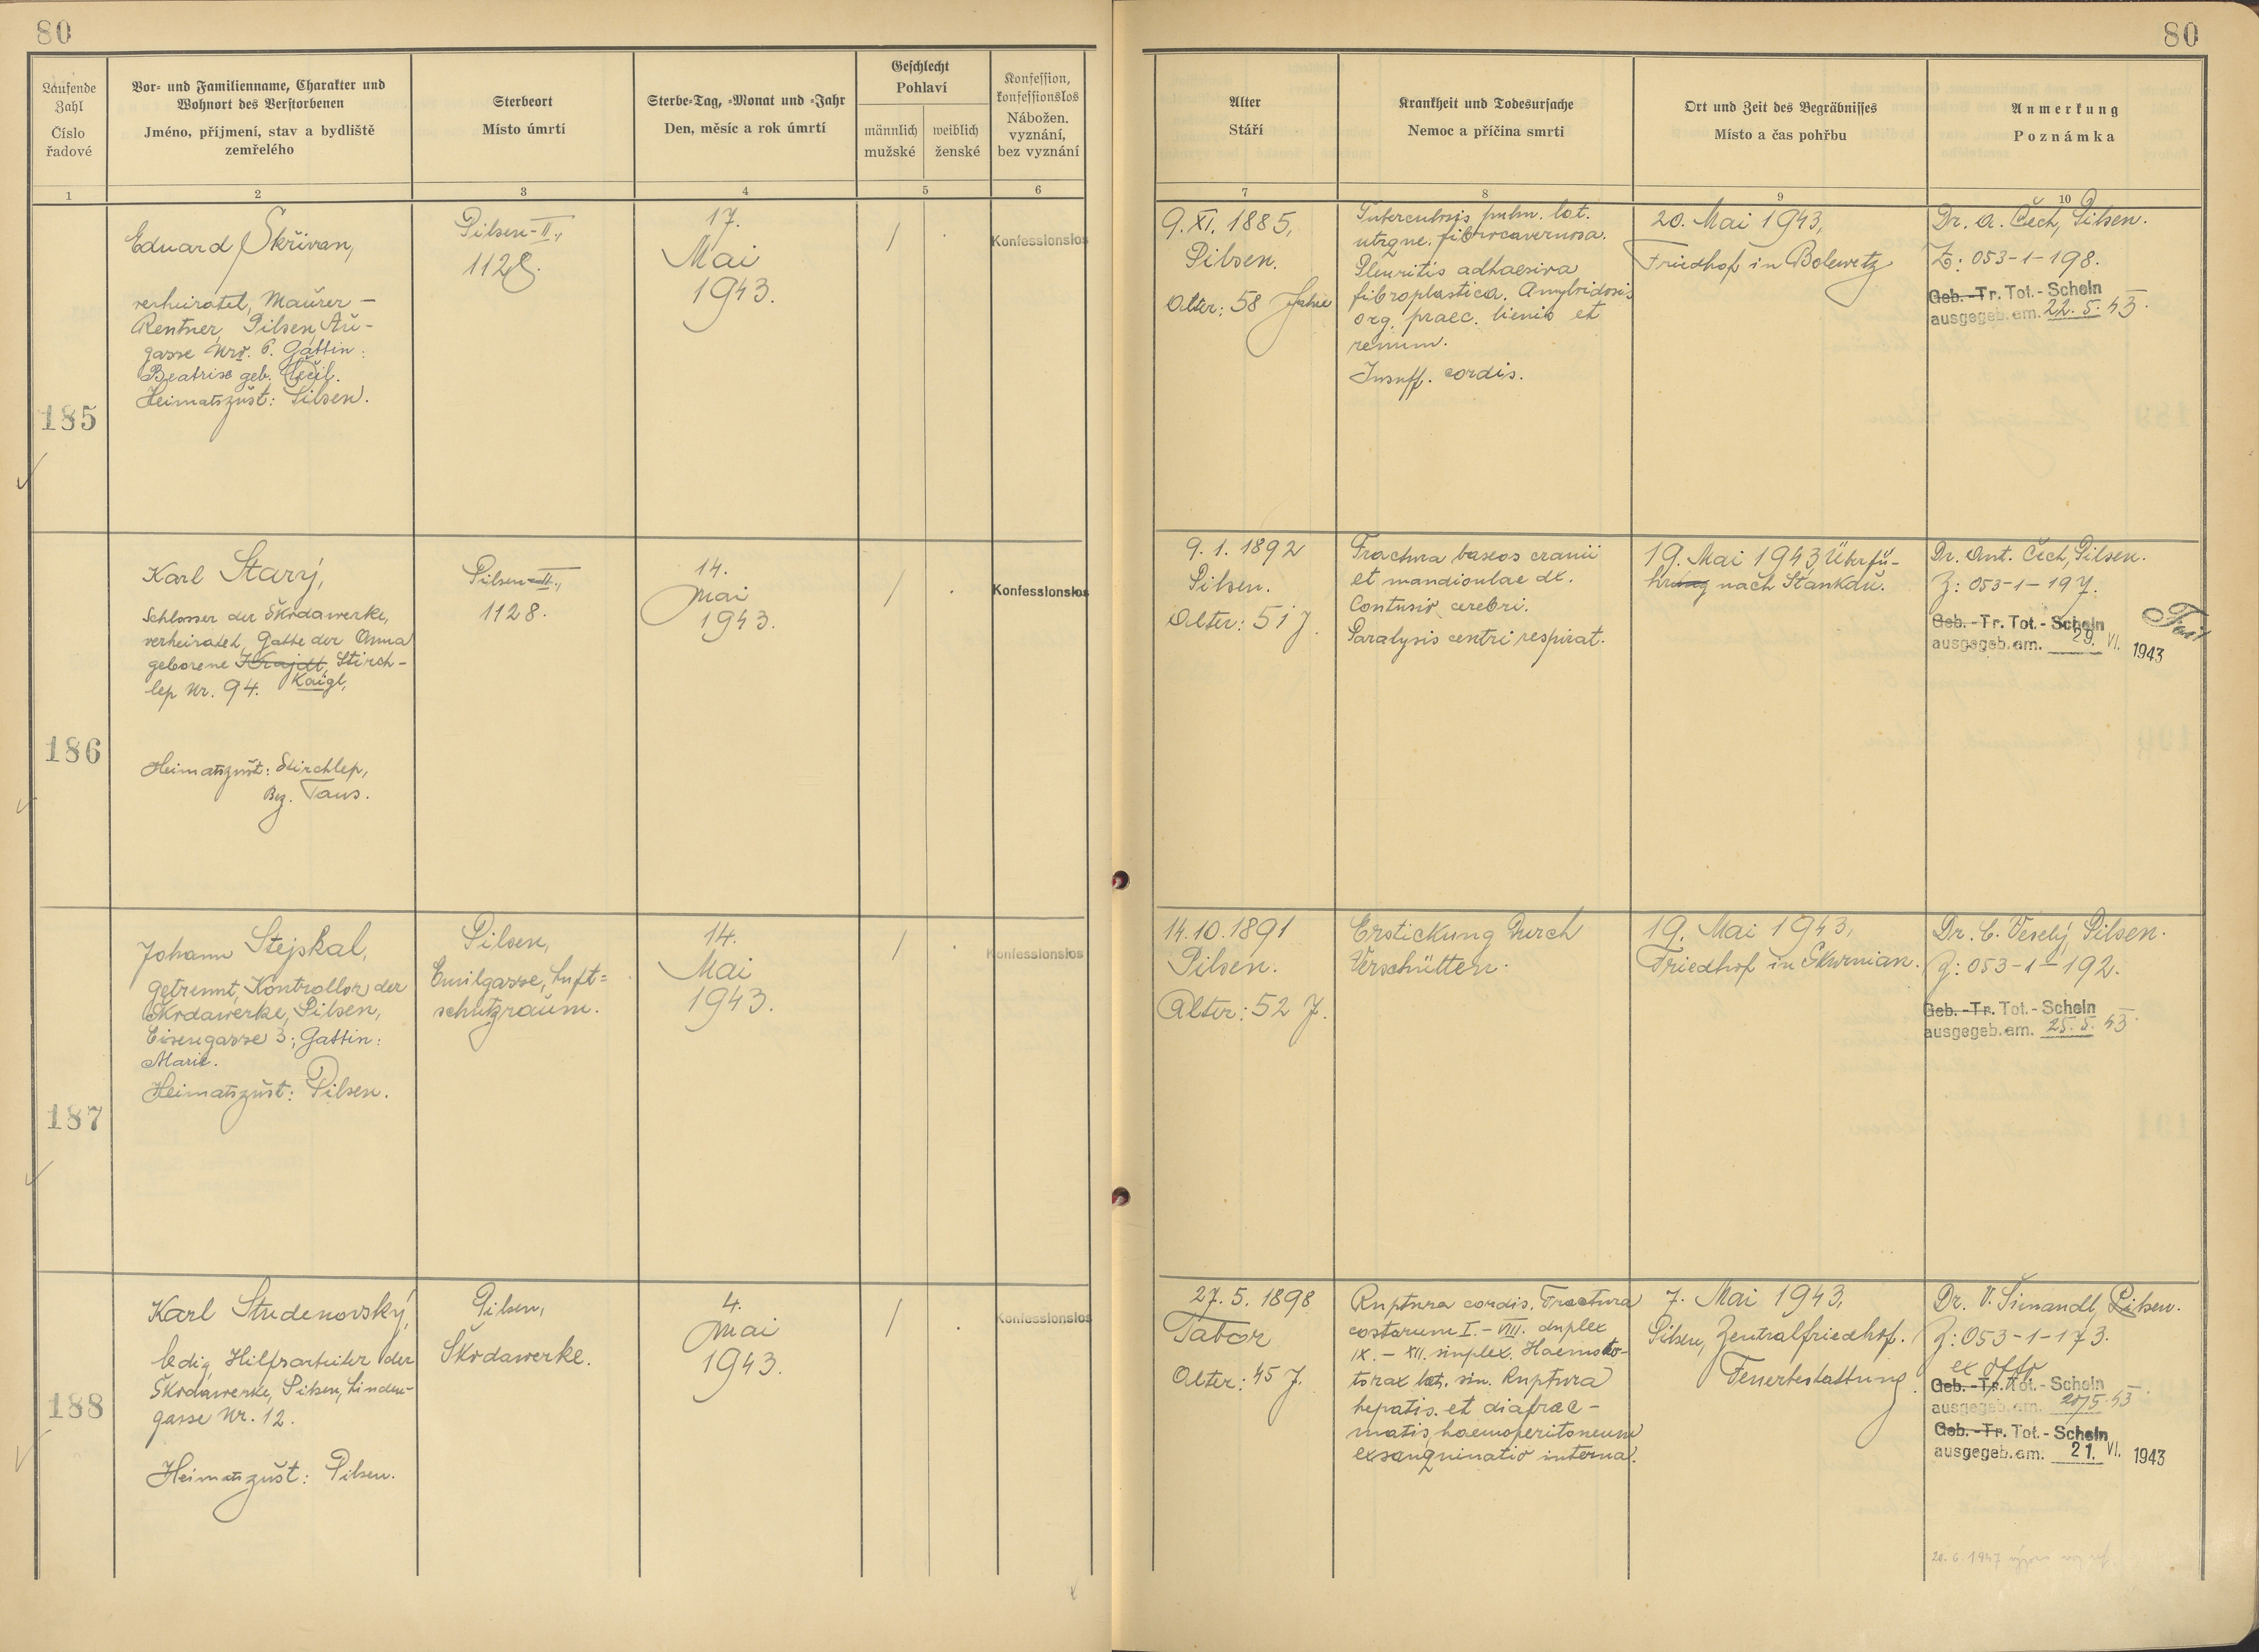 80
80
Laufende Zahl
Číslo řadové
Vor- und Familienname, Charakter und Wohnort des Verstorbenen
Jméno, příjmení, stav a bydliště zemřelého
Sterbeort
Místo úmrtí
Sterbe-Tag, -Monat und -Jahr
Den, měsíc a rok úmrtí
Geschlecht
Pohlaví
männlich
mužské
weiblich
ženské
Konfession, konfessionslos
Nábožen. vyznání, bez vyznání
Alter
Stáří
Krankheit und Todesursache
Nemoc a příčina smrti
Ort und Zeit des Begräbnisses
Místo a čas pohřbu
Anmerkung
Poznámka
1
2
3
4
5
6
7
8
9
10
185
Eduard Skřivan,
verheiratet, Maurer -
Rentner, Pilsen Au-
gasse Nr. 6. Gattin:
Beatrise geb. Čečil.
Heimatszust: Pilsen.
Pilsen-II.,
1128.
17.
Mai
1943.
/
Konfessionslos
9. XI. 1885,
Pilsen.
Alter: 58 Jahre
Tuberculosis pulm. lat.
utrque. fibrocavernosa.
Pleuritis adhaesiva
fibroplastica. Amyloidosis
org. praec. lienis et
renum.
Insuff. cordis.
20. Mai 1943,
Friedhof in Bolewetz
Dr. A. Čech, Pilsen.
Z: 053-1-198.
Geb.-Tr. Tot.-Schein
ausgegeb. am. 22. 5. 43.
186
Karl Starý,
Schlosser der Škodawerke,
verheiratet, Gatte der Anna
geborene Krajdl, Stirch-
lep Nr. 94. Kaigl,
Heimatszust: Stirchlep,
Bez. Taus.
Pilsen-II.,
1128.
14.
Mai
1943.
/
Konfessionslos
9. 1. 1892
Pilsen.
Alter: 51 J.
Fractura baseos cranii
et mandioulae dx.
Contusio cerebri.
Paralysis centri respirat.
19. Mai 1943 Überfü-
hrung nach Stankau.
Dr. Ant. Čech, Pilsen.
Z: 053-1-197.
Geb.-Tr. Tot.-Schein
ausgegeb. am. 29. VI. 1943
187
Johann Stejskal,
getrennt, Kontrollor der
Škodawerke, Pilsen,
Eisengasse 3; Gattin:
Marie.
Heimatszust: Pilsen.
Pilsen,
Emilgasse, Luft=
schutzraum.
14.
Mai
1943.
/
Konfessionslos
14. 10. 1891
Pilsen.
Alter: 52 J.
Erstickung durch
Verschütten.
19. Mai 1943,
Friedhof in Skurnian.
Dr. C. Veselý Pilsen.
Z: 053-1-192.
Geb.-Tr. Tot.-Schein
ausgegeb. am. 25. 5. 43.
188
Karl Studenovský,
ledig, Hilfsarbeiter der
Škodawerke, Pilsen, Linden-
gasse Nr. 12.
Heimatszust: Pilsen.
Pilsen,
Škodawerke.
4.
Mai
1943.
/
Konfessionslos
27. 5. 1898
Tabor
Alter: 45 J.
Ruptura cordis. Fractura
costarum I.-VIII. duplex
IX.-XII. sinplex. Haemoto-
torax lat. sin. Ruptura
hepatis. et diafrac-
matis, haemoperitoneum
exsanquinatio interna.
7. Mai 1943,
Pilsen, Zentralfriedhof.
Feuerbestattung.
Dr. V. Šimandl, Pilsen.
Z: 053-1-173.
ex offo
Geb.-Tr. Tot.-Schein
ausgegeb. am. 20/5. 43
Geb.-Tr. Tot.-Schein
ausgegeb. am. 21. VI. 1943
20. 6. 1947